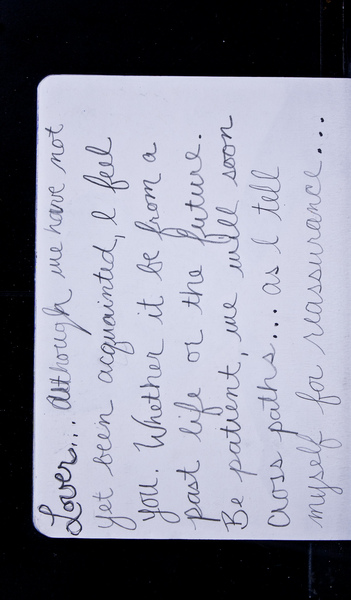 Lover... Although we have not
yet been acquainted, I feel
you. Whether it be from a
past life or the future.
Be patient, we will soon
cross paths... as I tell
myself for reassurance...